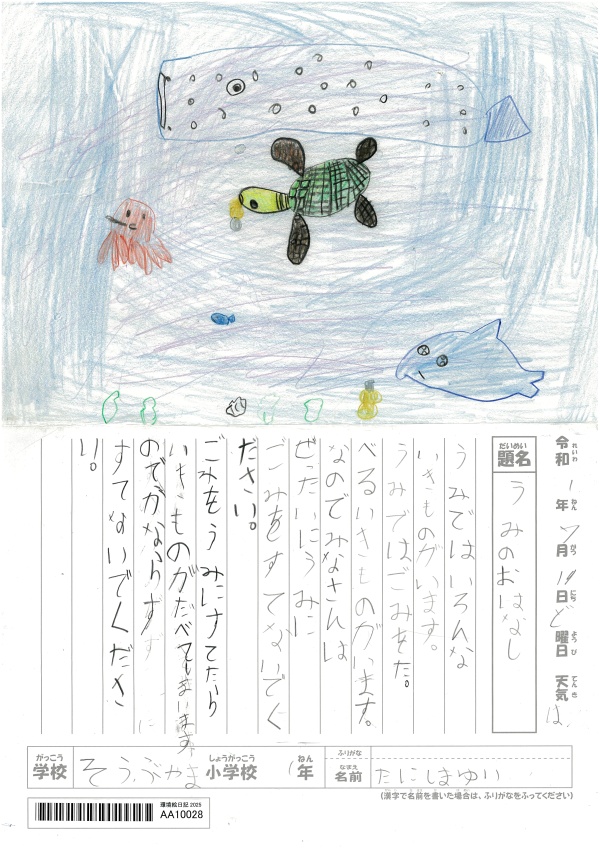 令和1年7月19日ど曜日 天気は
れいわ ねん がつ にち ようび てんき
だいめい
題名 うみのおはなし
うみではいろんな
いきものがいます。
うみではごみをた。
べるいきものがいます。
なのでみなさんは
ぜったいにうみに
ごみをすてないでく
ださい。
ごみをうみにすてたら
いきものがたべてしまいます
のでかならず
すてないでくださ
い。
がっこう しょうがっこう ねん
学校 そうぶやま 小学校 1年
ふりがな
なまえ
名前 たにしまゆい
(漢字で名前を書いた場合は、ふりがなをふってください)
環境絵日記 2025
AA10028